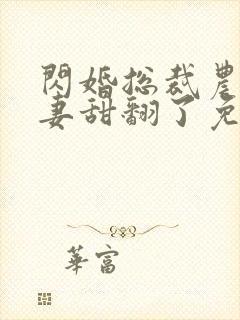 閃婚总裁農
妻甜翻了免
華富